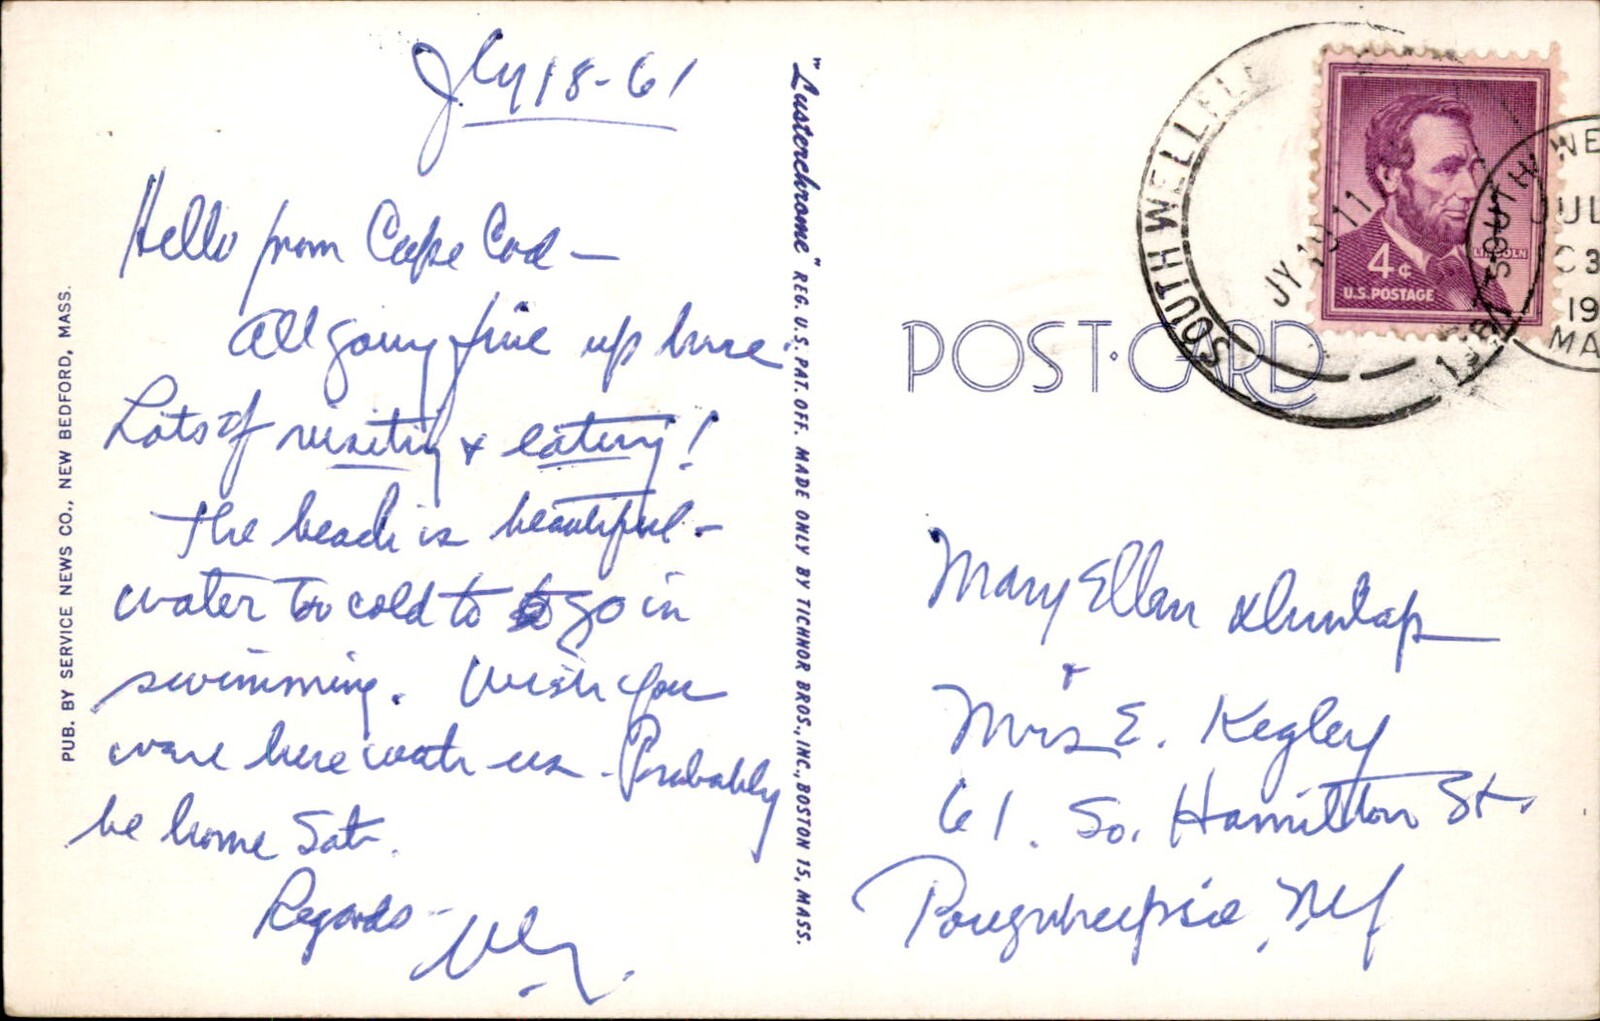 Jly 18-61
Hello from Cape Cod —
All going fine up here.
Lots of visiting & eating!
The beach is beautiful -
water too cold to go in
swimming. Wish you
were here with us. Probably
be home Sat.
Regards -
PUB. BY SERVICE NEWS CO., NEW BEDFORD, MASS.
"Lusterchrome" REG. U.S. PAT. OFF. MADE ONLY BY TICHNOR BROS., INC., BOSTON 15, MASS.
POST·CARD
SOUTH WELLFL
JY 18 11
4¢
LINCOLN
U.S. POSTAGE
SOUTH WE
JUL
3
19
MA
Mary Ellen Dunlap
+
Mrs E. Kegley
61. So. Hamilton St.
Poughkeepsie, NY